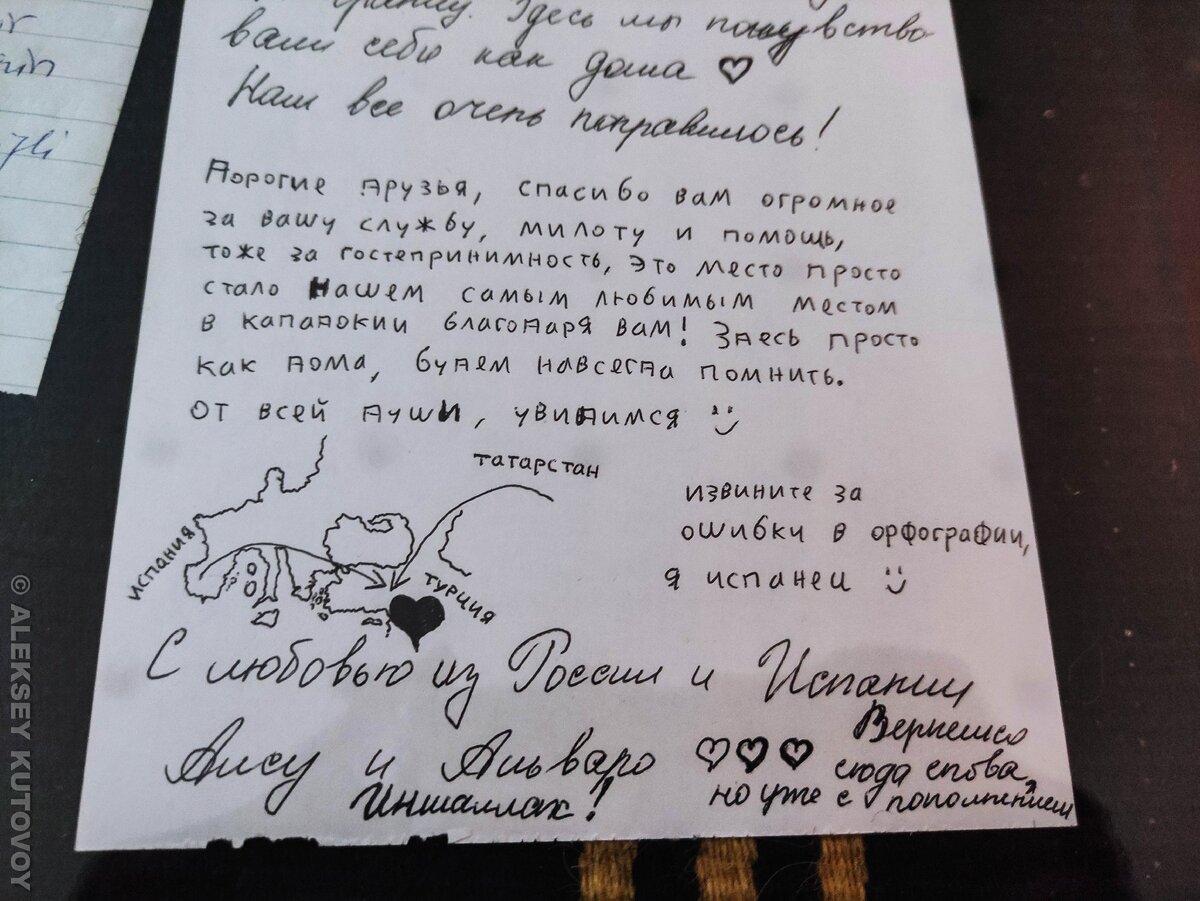 Здесь мы почувство-
вали себя как дома ♡
Нам все очень понравилось!
Дорогие друзья, спасибо вам огромное
за вашу службу, милоту и помощь,
тоже за гостепринимность, это место просто
стало нашем самым любимым местом
в Кападокии благодаря вам! Здесь просто
как дома, будем навсегда помнить.
От всей души, увидимся
татарстан
испания
турция
извините за
ошибки в орфографии,
я испанец
С любовью из России и Испании
Алсу и Альваро ♡♡♡
Иншаллах!
Вернемся
сюда снова,
но уже с пополнением
© ALEKSEY KUTOVOY